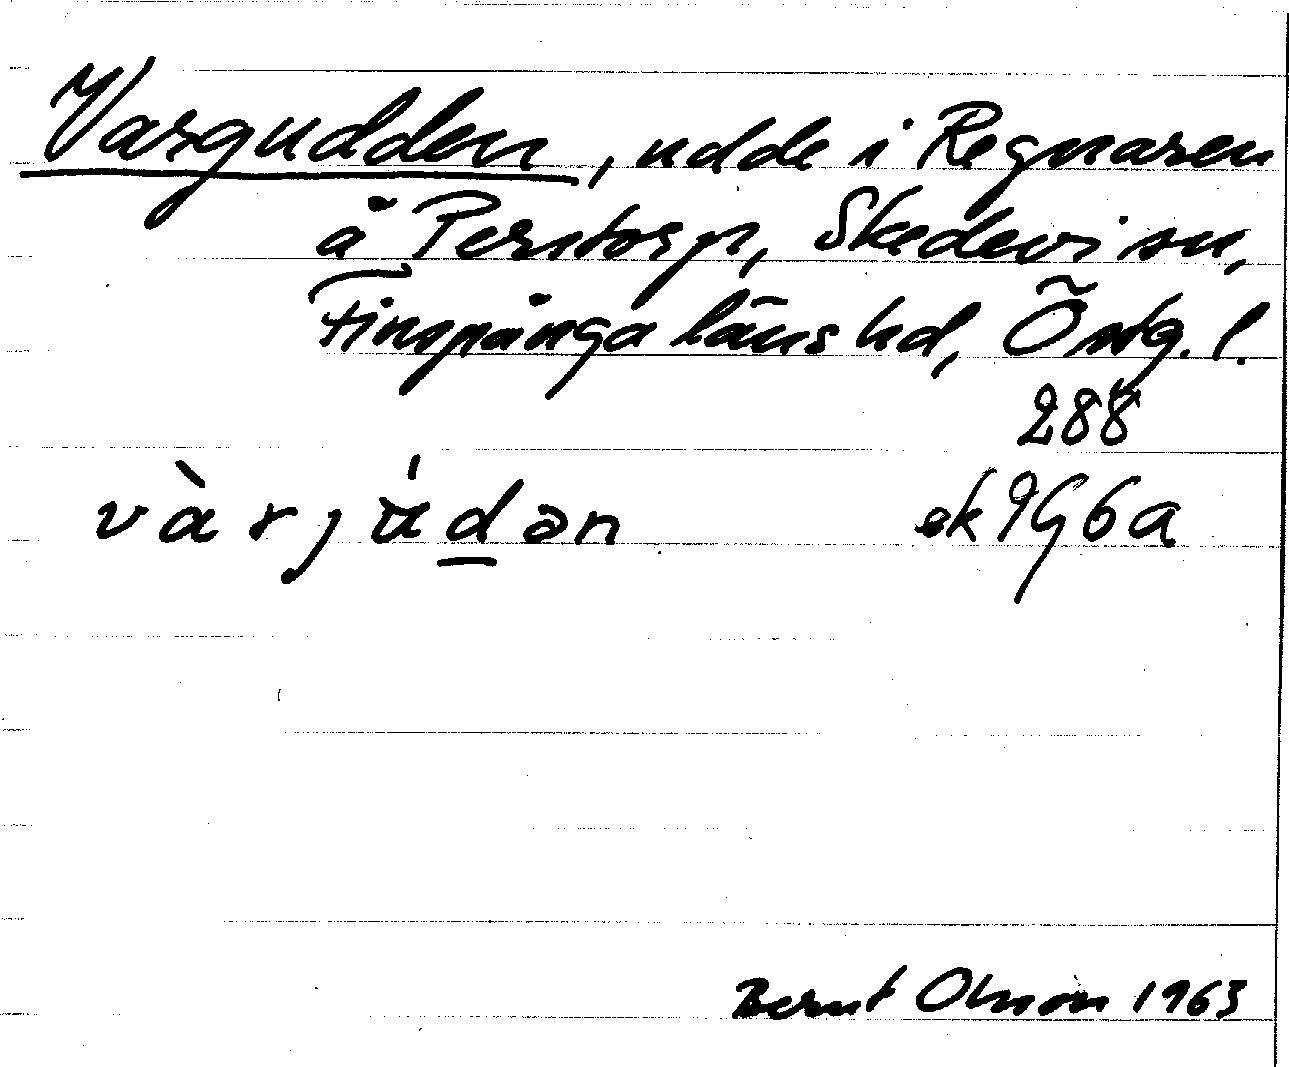 Vargudden, udde i Regnaren
å Perstorp, Skedevi sn,
Finspånga läns hd, Östg. l.
288
vàrjùdən ek 9G6a
Bernt Olsson 1963